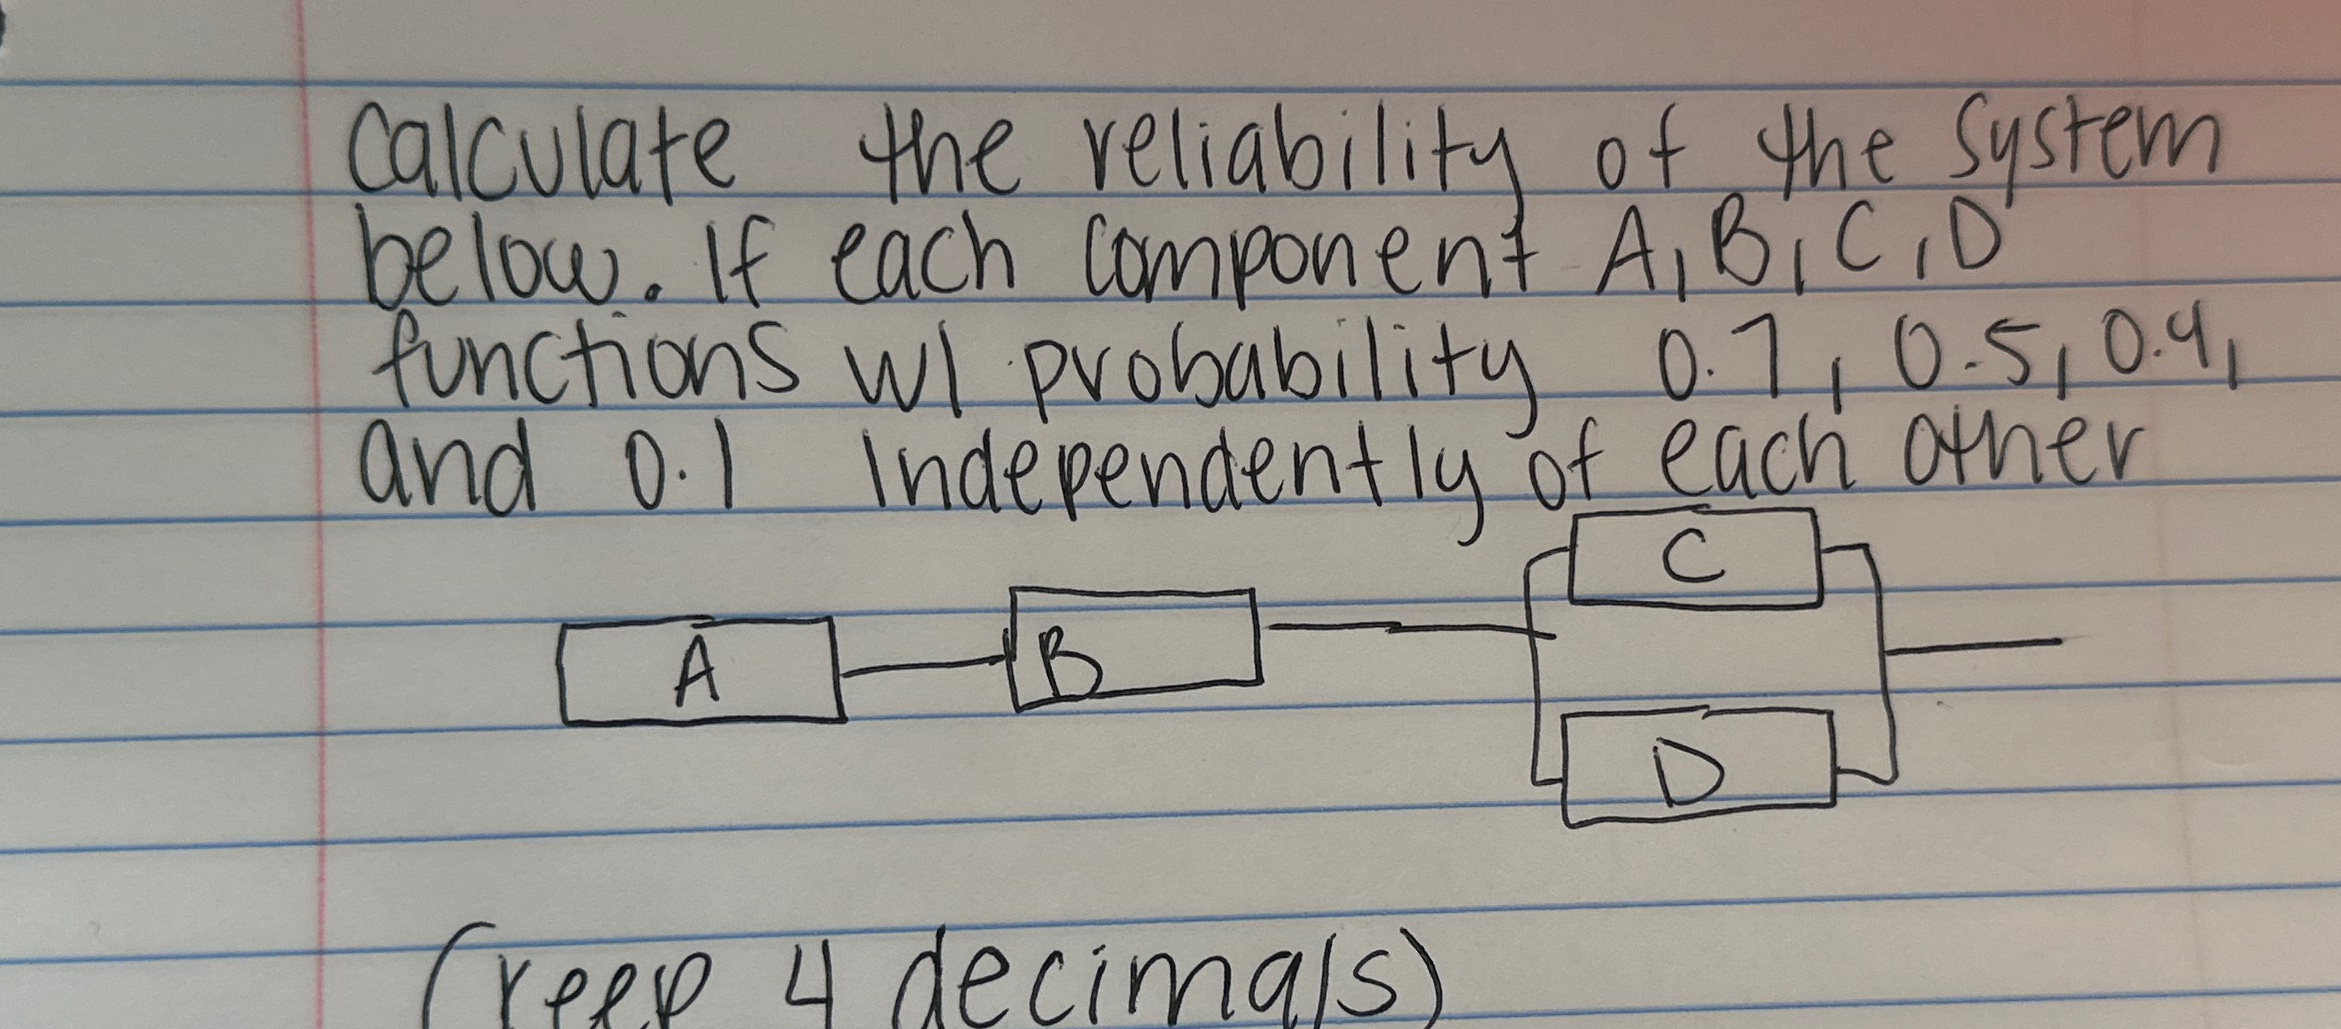 Calculate the reliability of the system
below. If each component A, B, C, D
functions w/ probability 0.7, 0.5, 0.4,
and 0.1 independently of each other
C
A
B
D
(keep 4 decimals)